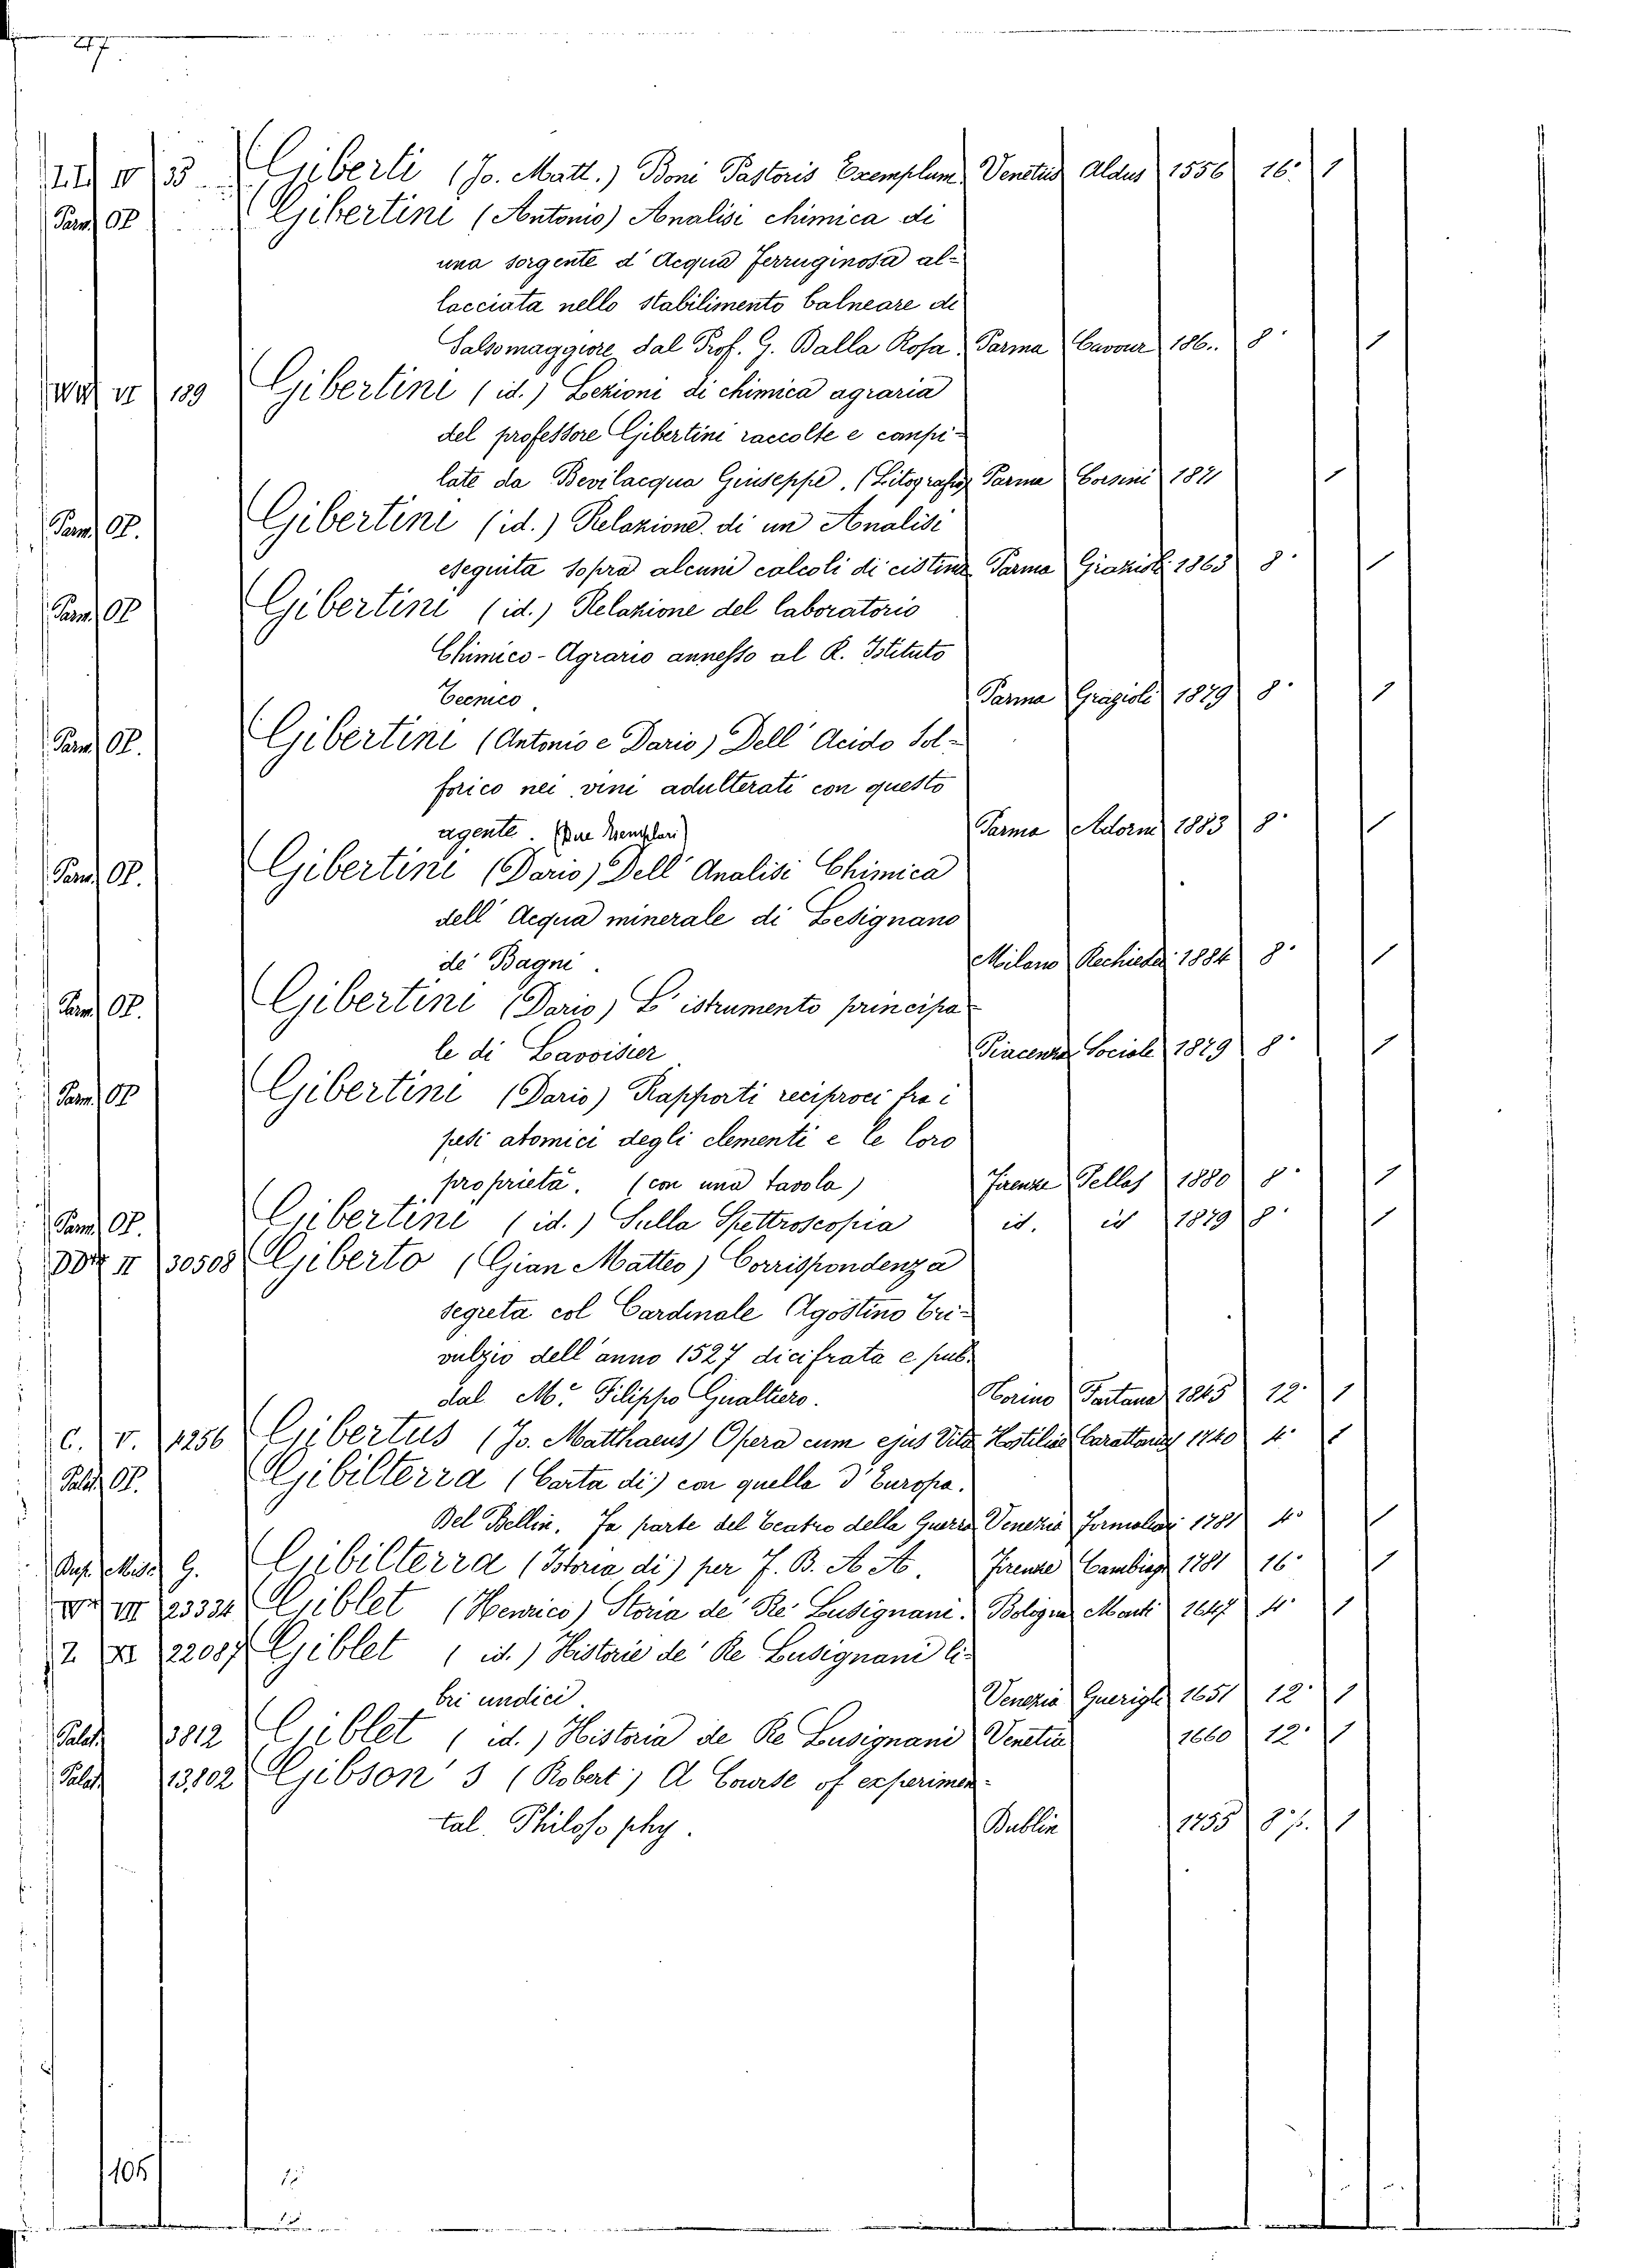 47
IV 35 Giberti (Jo. Matt.) Boni Pastoris Exemplum Venetiis Aldus 1556 16.° 1
Parm. OP Gibertini (Antonio) Analisi chimica di
una sorgente d'Acqua ferruginosa al-
lacciata nello stabilimento balneare di
Salsomaggiore dal Prof. G. Balla Rosa. Parma Cavour 186.. 8° 1
VI 189 Gibertini (id.) Lezioni di chimica agraria
del professore Gibertini raccolte e compi-
late da Bevilacqua Giuseppe. (Litografia) Parma Corsini 1871 1
Parm. OP. Gibertini (id.) Relazione di un Analisi
eseguita sopra alcuni calcoli di cistina Parma Grazioli 1863 8° 1
Parm. OP Gibertini (id.) Relazione del laboratorio
Chimico-Agrario annesso al R. Istituto
Tecnico. Parma Grazioli 1879 8° 1
Parm. OP. Gibertini (Antonio e Dario) Dell'Acido Sol-
forico nei vini adulterati con questo
agente. (Due Esemplari) Parma Adorni 1883 8° 1
Parm. OP. Gibertini (Dario) Dell'Analisi Chimica
dell'Acqua minerale di Lesignano
de' Bagni. Milano Rechiedei 1884 8° 1
Parm. OP. Gibertini (Dario) L'istrumento principa-
le di Lavoisier Piacenza Sociale 1879 8° 1
Parm. OP Gibertini (Dario) Rapporti reciproci fra i
pesi atomici degli elementi e le loro
proprietà. (con una tavola) Firenze Pellas 1880 8° 1
Parm. OP. Gibertini (id.) Sulla Spettroscopia id. id 1879 8° 1
II 30508 Giberto (Gian Matteo) Corrispondenza
segreta col Cardinale Agostino Tri-
vulzio dell'anno 1527 dicifrata e pub.
dal M.se Filippo Gualtiero. Torino Fontana 1845 12.° 1
C. V. 1256 Gibertus (Jo. Matthaeus) Opera cum ejus Vita Hostiliae Carattonius 1740 4° 1
Palat. OP. Gibilterra (Carta di) con quella d'Europa.
Del Bellin. Fa parte del Teatro della Guerra Venezia Formaleoni 1781 4° 1
Misc. G. Gibilterra (Istoria di) per J. B. A. A. Firenze Cambiagi 1781 16° 1
VII 23334 Giblet (Henrico) Storia de' Re' Lusignani. Bologna Monti 1647 4° 1
Z XI 22087 Giblet (id.) Historie de' Re Lusignani li-
bri undici. Venezia Guerigli 1651 12° 1
Palat. 13812 Giblet (id.) Historia de Re Lusignani Venetia 1660 12.° 1
Palat. 13,802 Gibson's (Robert) A Course of experimen-
tal Philosophy. Dublin 1755 8° 1
105